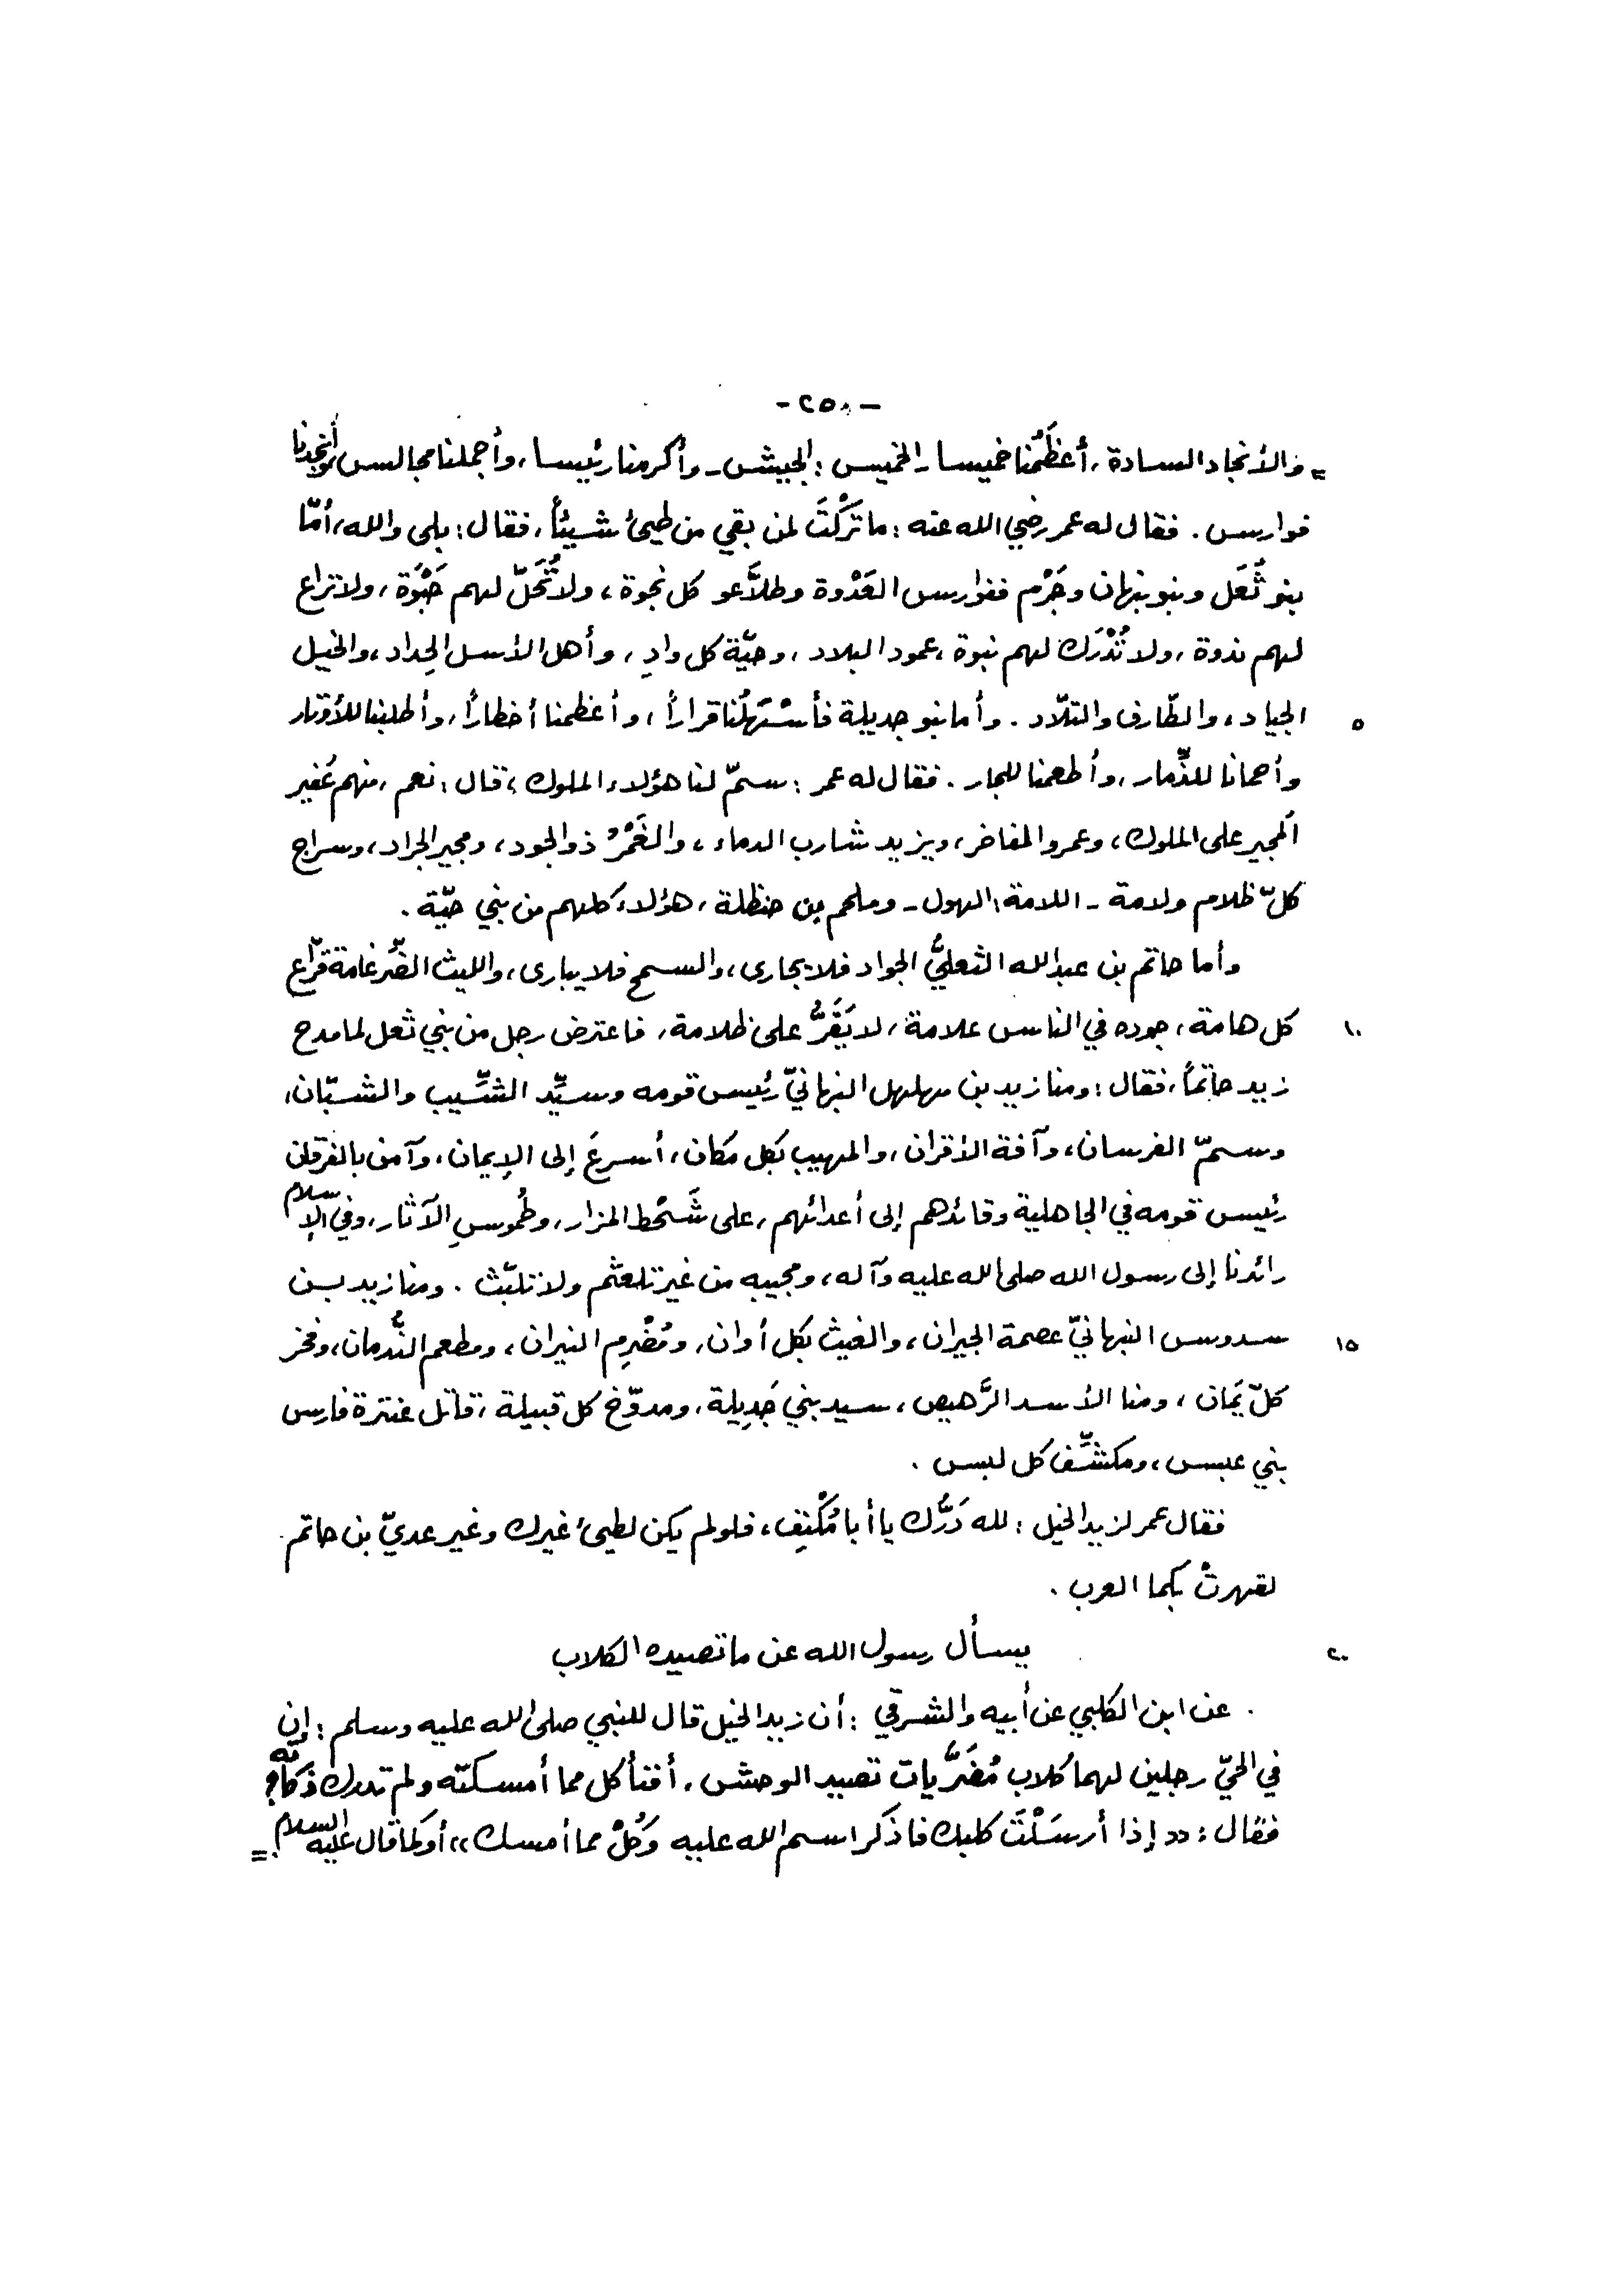 - ٢٥٠ -
= والأنجاد السادة، أعظَمُنا خميسا - الخميس: الجيش - وأكرمنا رئيسا، وأجملنا مجالس، وأنجدنا
فوارس. فقال له عمر رضي الله عنه: ما تَرَكْتَ لمن بقي من طيئ شيئاً، فقال: بلى والله، أمّا
بنو ثُعَل وبنو نبهان وجَرْم ففوارس العَدْوة وطلاَّعو كل نجوة، ولا تُحَلّ لهم حَبْوَة، ولا تراع
لهم ندوة، ولا تُدْرَك لهم نبوة، عمود البلاد، وحيّة كل وادِ، وأهل الأسل الحِداد، والخيل
٥ الجياد، والطّارف والتلّاد. وأما بنو جديلة فأسْهَلُنا قراراً، وأعظمنا أخطاراً، وأطلبنا للأوتار
وأحمانا للذِّمار، وأطعمنا للجار. فقال له عمر: سمّ لنا هؤلاء الملوك، قال: نعم، منهم عُفير
المجير على الملوك، وعمرو المفاخر، ويزيد شارب الدماء، والغَمْرُ ذو الجود، ومجير الجراد، وسراج
كلّ ظلام ولامة - اللامة: الهول - وملحم بن حنظلة، هؤلاء كلهم من بني حيّة.
وأما حاتم بن عبدالله الثعليُّ الجواد فلا يجارى، والسمح فلا يبارى، والليث الضِّرغامة قرّاع
١٠ كل هامة، جوده في الناس علامة، لا يَقَرُّ على ظلامة، فاعترض رجل من بني ثعل لما مدح
زيد حاتماً، فقال: ومنا زيد بن مهلهل النبهانيّ رئيس قومه وسيِّد الشِّيب والشبّان،
وسمّ الفرسان، وآفة الأقران، والمهيب بكل مكان، أسرعَ إلى الإيمان، وآمن بالفرقان
رئيس قومه في الجاهلية وقائدهم إلى أعدائهم، على شَحْط المزار، وطُموسِ الآثار، وفي الإسلام
رائدنا إلى رسول الله صلى الله عليه وآله، ومجيبه من غير تلعثم ولا تلبّث. ومنا زيد بن
١٥ سدوس النبهانيّ عصمة الجيران، والغيث بكل أوان، ومُضْرِم النيران، ومطعم النُّدمان، وفخر
كلّ يَمَان، ومنا الأسد الرَّهيص، سيد بني جَدِيلة، ومدوّخ كل قبيلة، قاتل عنترة فارس
بني عبس، ومكشِّف كل لبس.
فقال عمر لزيد الخيل: لله دَرُّك يا أبا مُكْنِف، فلو لم يكن لطيئ غيرك وغير عديّ بن حاتم
لقهرتْ بكما العرب.
٢٠ يسأل رسول الله عن ما تصيده الكلاب
. عن ابن الكلبي عن أبيه والشرقي: أن زيد الخيل قال للنبي صلى الله عليه وسلم: إن
في الحيّ رجلين لهما كلاب مُضَرَّيات تصيد الوحش، أفنأكل مما أمسكته ولم تدرك ذكاته؟
فقال: «إذا أرسَلْتَ كلبك فاذكر اسم الله عليه وَكُلْ مما أمسك» أو كما قال عليه السلام. =